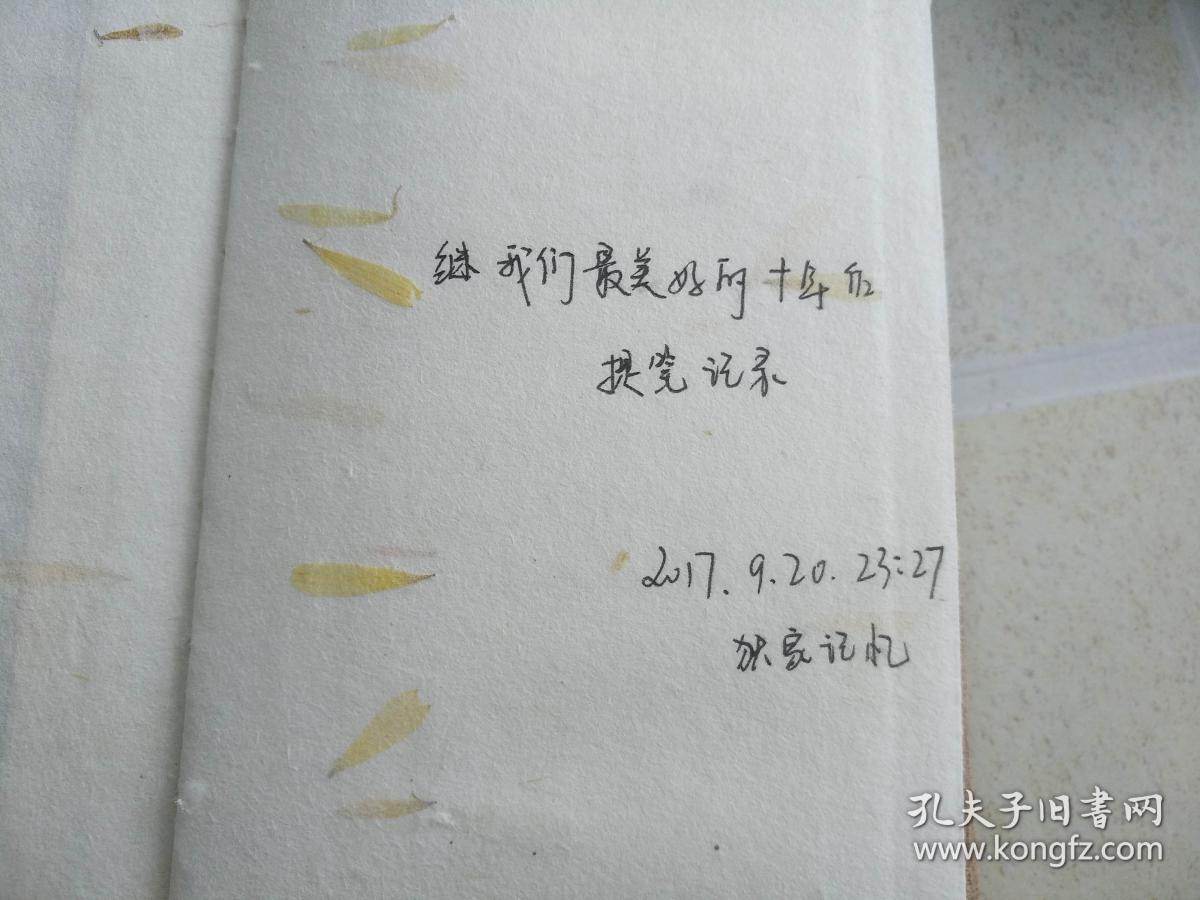 继我们最美好的十年后
提笔记录
2017.9.20.23:27
独家记忆
孔夫子旧書网
www.kongfz.com